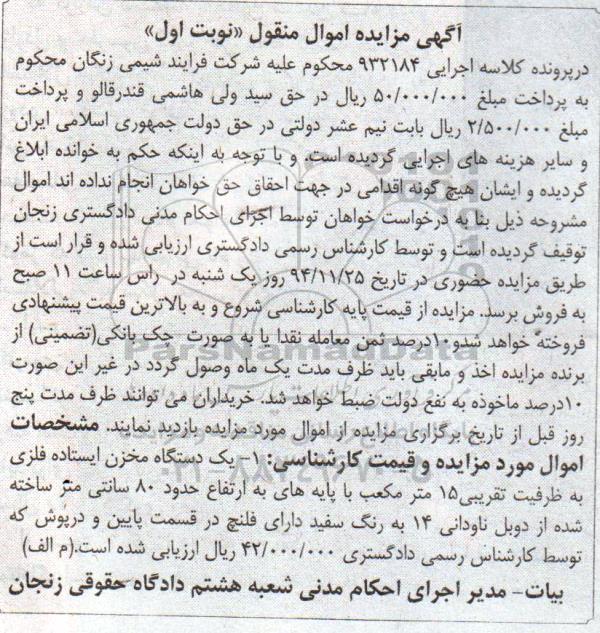 آگهی مزایده اموال منقول «نوبت اول»
درپرونده کلاسه اجرایی ۹۳۲۱۸۴ محکوم علیه شرکت فرایند شیمی زنگان محکوم
به پرداخت مبلغ ۵۰/۰۰۰/۰۰۰ ریال در حق سید ولی هاشمی قندرقالو و پرداخت
مبلغ ۲/۵۰۰/۰۰۰ ریال بابت نیم عشر دولتی در حق دولت جمهوری اسلامی ایران
و سایر هزینه های اجرایی گردیده است. و با توجه به اینکه حکم به خوانده ابلاغ
گردیده و ایشان هیچ گونه اقدامی در جهت احقاق حق خواهان انجام نداده اند اموال
مشروحه ذیل بنا به درخواست خواهان توسط اجرای احکام مدنی دادگستری زنجان
توقیف گردیده است و توسط کارشناس رسمی دادگستری ارزیابی شده و قرار است از
طریق مزایده حضوری در تاریخ ۹۴/۱۱/۲۵ روز یک شنبه در راس ساعت ۱۱ صبح
به فروش برسد. مزایده از قیمت پایه کارشناسی شروع و به بالاترین قیمت پیشنهادی
فروخته خواهد شدو۱۰درصد ثمن معامله نقدا یا به صورت چک بانکی(تضمینی) از
برنده مزایده اخذ و مابقی باید ظرف مدت یک ماه وصول گردد در غیر این صورت
۱۰درصد ماخوذه به نفع دولت ضبط خواهد شد. خریداران می توانند ظرف مدت پنج
روز قبل از تاریخ برگزاری مزایده از اموال مورد مزایده بازدید نمایند. مشخصات
اموال مورد مزایده و قیمت کارشناسی: ۱- یک دستگاه مخزن ایستاده فلزی
به ظرفیت تقریبی۱۵ متر مکعب با پایه های به ارتفاع حدود ۸۰ سانتی متر ساخته
شده از دوبل ناودانی ۱۴ به رنگ سفید دارای فلنچ در قسمت پایین و درپوش که
توسط کارشناس رسمی دادگستری ۴۲/۰۰۰/۰۰۰ ریال ارزیابی شده است.(م الف)
بیات- مدیر اجرای احکام مدنی شعبه هشتم دادگاه حقوقی زنجان
ParsNamadData